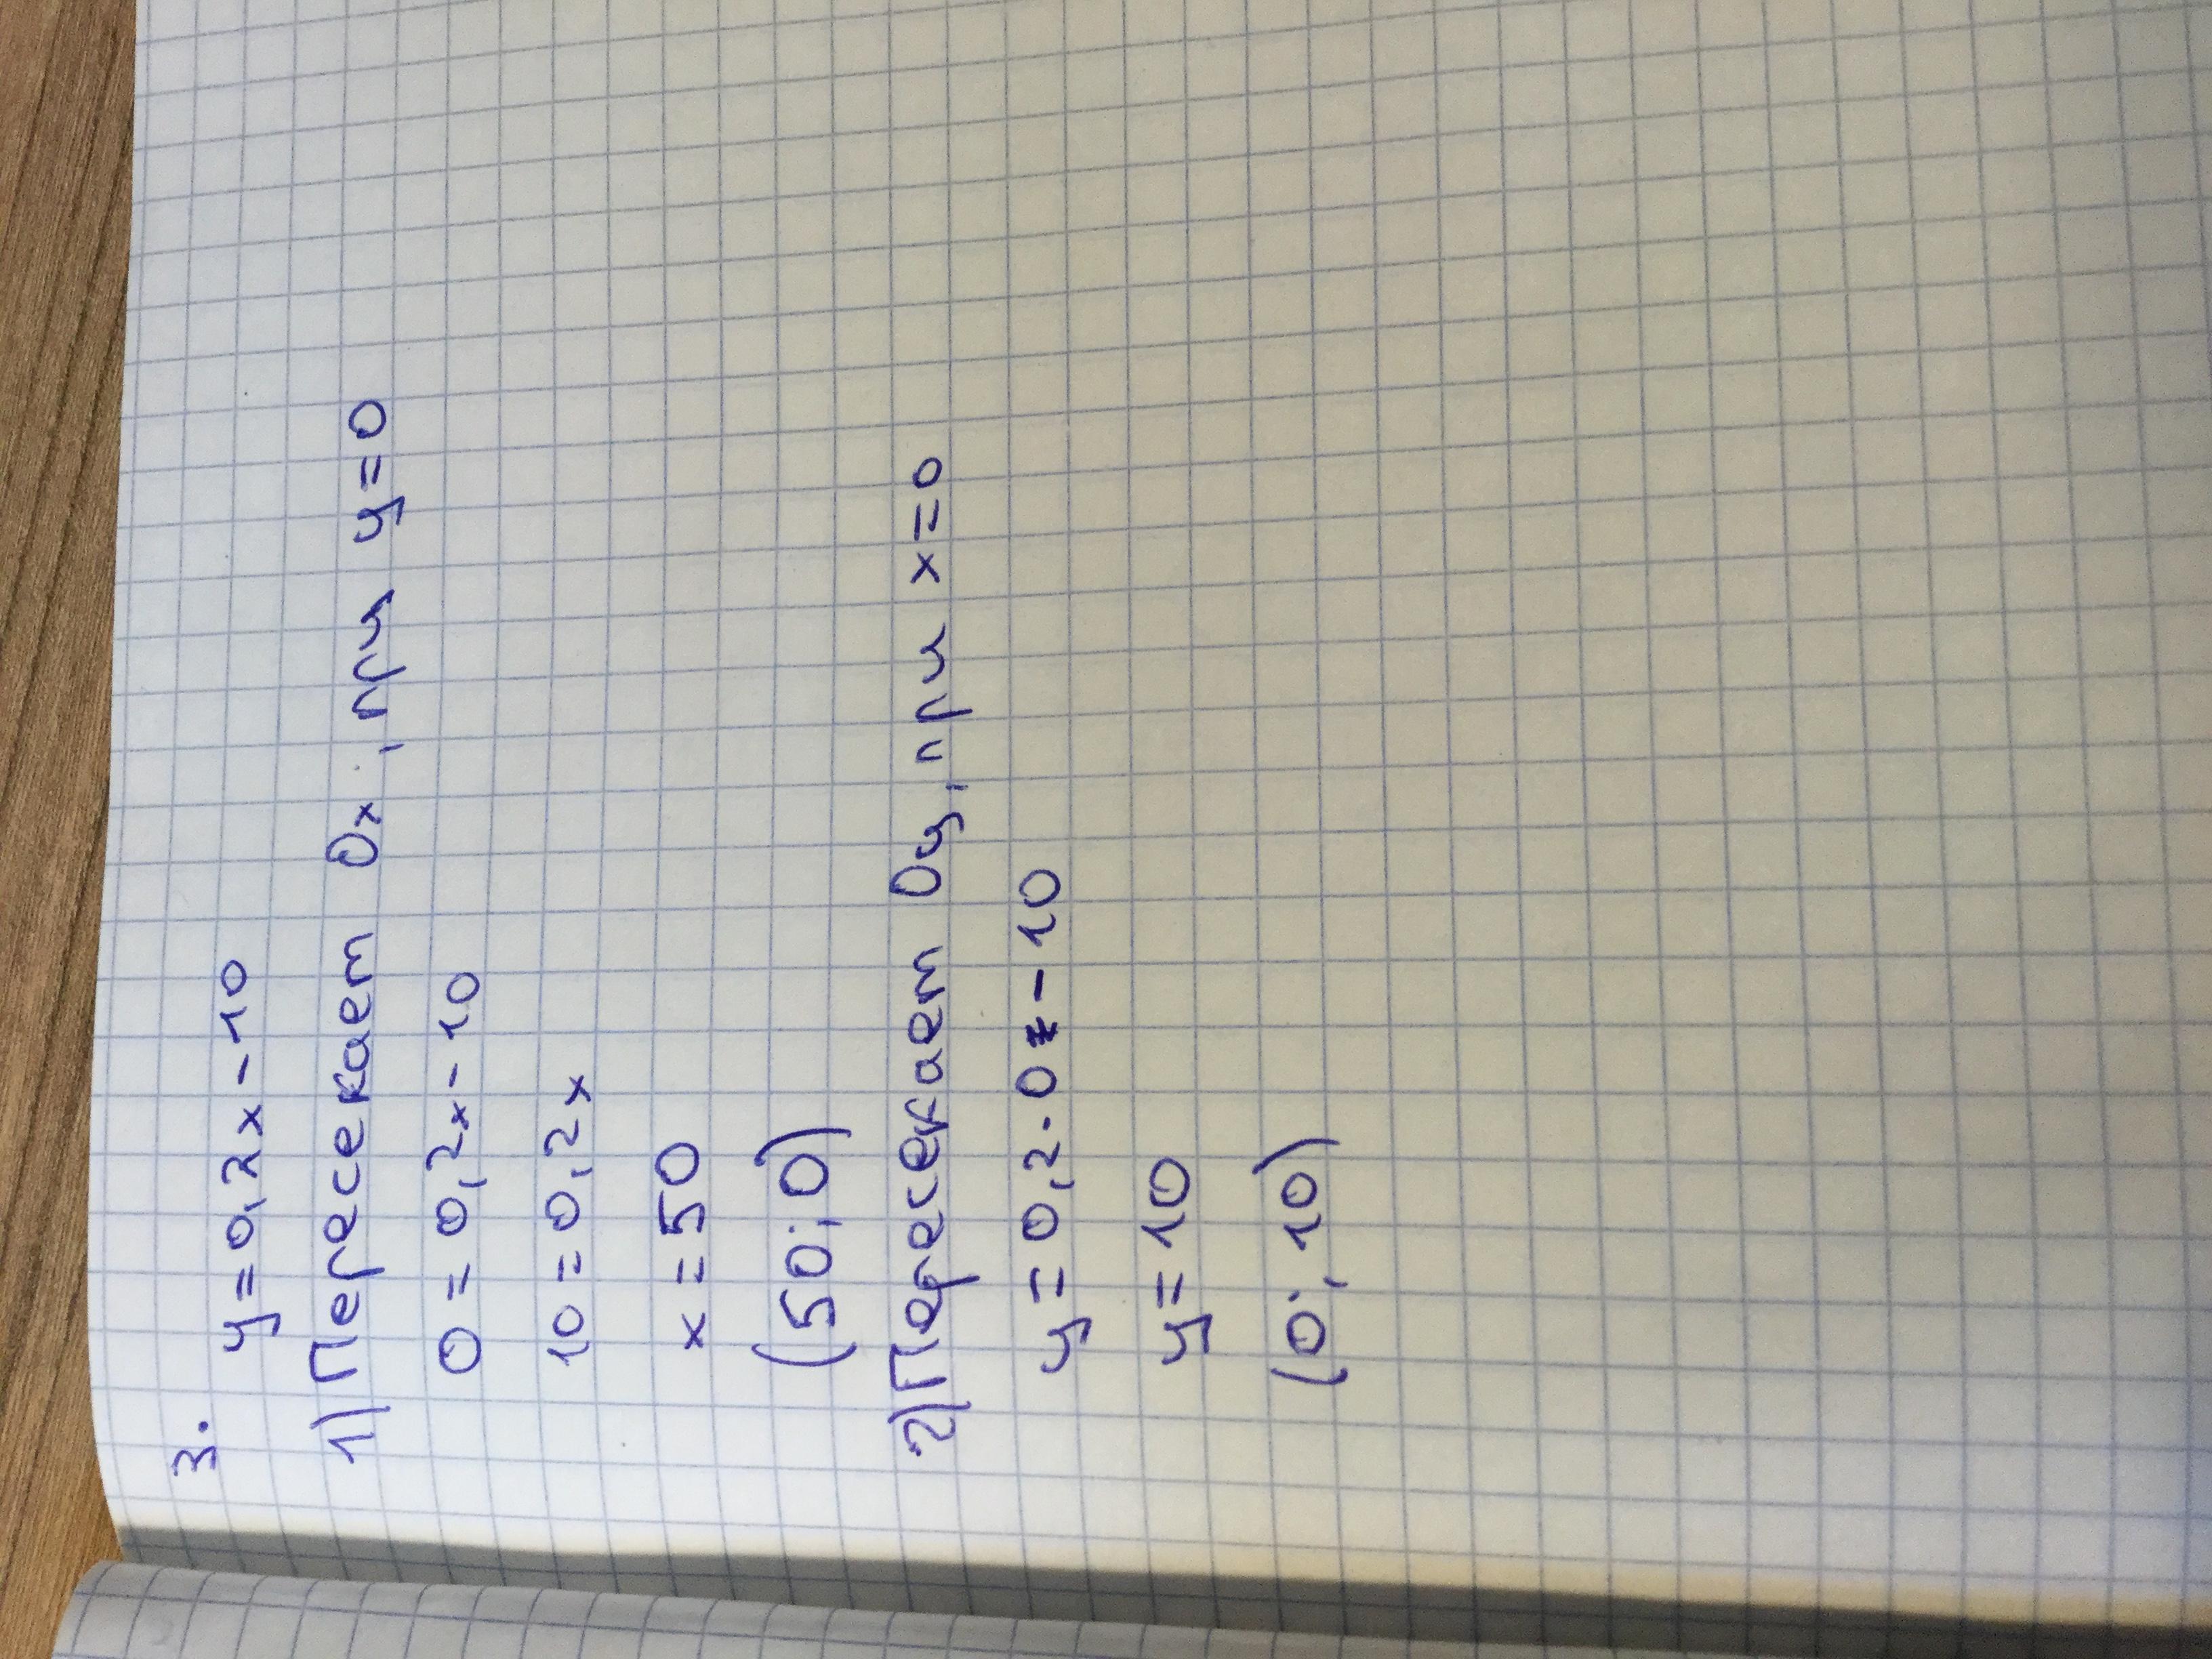 3.
y=0,2x-10
1) Пересекает Ox, при y=0
0=0,2x-10
10=0,2x
x=50
(50;0)
2) Пересекает Oy, при x=0
y=0,2·0-10
y=10
(0; 10)